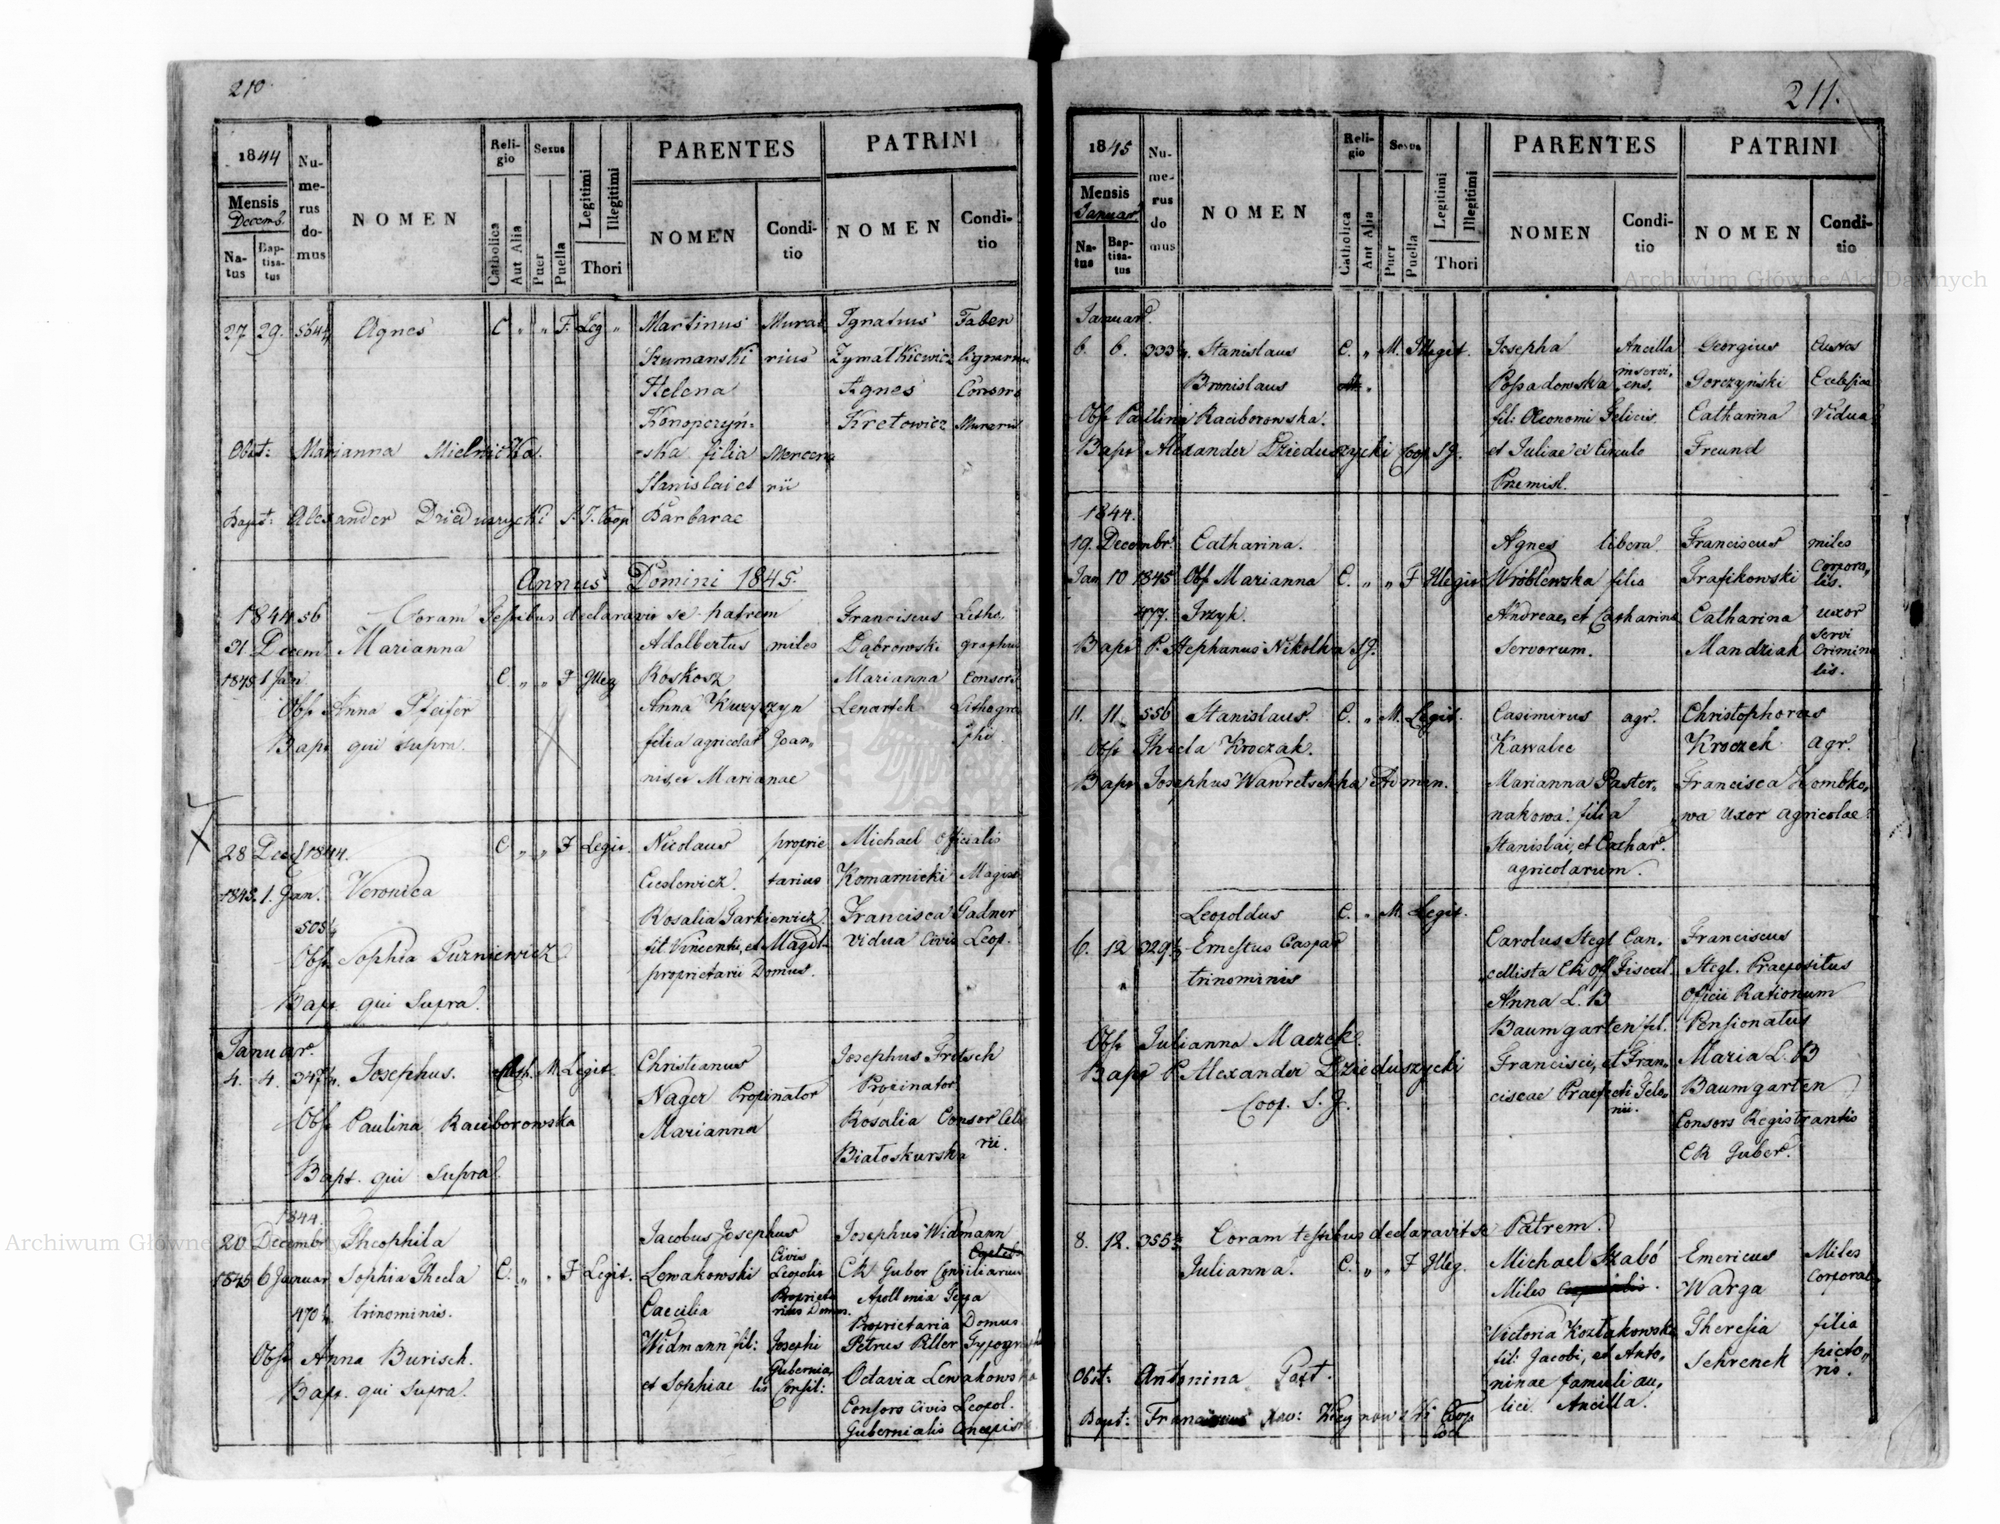 210.
1844
Mensis
Decemb.
Natus
Baptisatus
Numerus domus
NOMEN
Religio
Catholica
Aut Alia
Sexus
Puer
Puella
Legitimi
Illegitimi
Thori
PARENTES
NOMEN
Conditio
PATRINI
NOMEN
Conditio
27 29. 564 4/4 Agnes C „ „ F. Leg „ Martinus Mura- Ignatius Faber
Szumanski rius Zymatkiewicz lignarius
Helena Agnes Consors
Konopczyń- Kretowicz Murarii
Obst: Marianna Mielnicka. -ska filia Mercena
Stanislai et rii
Bapt: Alexander Dzieduszycki S.J. Coop Barbarae
Annus Domini 1845.
1844 56 Coram Testibus declaravit se patrem Franciscus Litho-
31 Decem. Marianna Adalbertus miles Dąbrowski graphus
1845 1 Jan C. „ „ F Illeg Roskosz Marianna Consors
Obst Anna Pfeifer Anna Kuzyczyn Lenartek Lithogra
Bapt qui supra. filia agricolar Joan- phi.
nis, et Marianae
28 Dec 1844. C „ „ F Legit. Nicolaus proprie Michael Officialis
1845. 1. Jan. Veronica Cieslewicz. tarius Komarnicki Magist
505 4/4 Rosalia Jarkiewicz Francisca Gadner
Obst Sophia Turniewicz fil Vincentii, et Magd. vidua Civis Leop.
proprietarii Domus.
Bapt. qui Supra.
Januar.
4. 4. 347 4/4. Josephus. Cath. M. Legit. Christianus Josephus Fritsch
Nager Propinator Propinator
Obst Paulina Raciborowska Marianna Rosalia Consor Cela
Białoskurska rii.
Bapt. qui Supra
1844.
20 Decembr Theophila Jacobus Josephus Josephus Widmann
1845 6 Januar Sophia Thecla C. „ „ F Legit. Lewakowski Civis Leopolis CR Guber Consiliarius
470 4/4 trinominis. Caecilia Proprieta rius Domus. Apollonia
Proprietaria Domus
Obst Anna Burisch. Widmann fil: Josephi Petrus Piller Typogr
Bapt. qui Supra. et Sophiae Gubernia lis Consil: Octavia Lewakowska
Consors Civis Leopol.
Gubernialis Concepist
211.
1845
Mensis
Januar.
Natus
Baptisatus
Numerus domus
NOMEN
Religio
Catholica
Aut Alia
Sexus
Puer
Puella
Legitimi
Illegitimi
Thori
PARENTES
NOMEN
Conditio
PATRINI
NOMEN
Conditio
Januar.
6. 6. 333 4/4. Stanislaus C. „ M. Illegit. Josepha Ancilla Georgius Custos
Bronislaus „ Possadowska inservi- ens. Gorczyński Ecclesiae
Obst Paulina Raciborowska. fil: Oeconomi Felicis Catharina Vidua
Bapt Alexander Dzieduszycki Coop SJ. et Juliae ex Circulo Freund
Przemisl.
1844.
19. Decembr. Catharina. Agnes libera. Franciscus miles
Jan 10 1845 Obst Marianna C. „ „ F Illegit Wróblewska filia Trafikowski Corpora- lis.
477. Irzyk. Andreae, et Catharina Catharina uxor
Bapt P. Stephanus Nikolka SJ. Servorum. Mandziak Servi Crimina lis.
11. 11. 556 Stanislaus. C. „ M. Legit. Casimirus agr. Christophorus
Obst Thecla Kroczak. Kawalec Kroczek agr.
Bapt Josephus Wawretschka Domin. Marianna Paster- Francisca Zombko-
nakowa filia wa uxor agricolae.
Stanislai, et Cathar.
agricolarum.
Leopoldus C. „ M. Legit.
6. 12 329 4/4 Ernestus Caspar Carolus Stegl Can- Franciscus
trinominis cellista CR Off Fiscal. Stegl. Praepositus
Anna L. B Officii Rationum
Obst Julianna Maczek. Baumgarten fil. Pensionatus
Bapt P Alexander Dzieduszycki Francisci, et Fran- Maria L. B
Coop. S. J. ciscae Praefecti Telo- nii. Baumgarten
Consors Registrantis
CR Guber.
8. 12. 355 Coram testibus declaravit se Patrem.
Julianna. C. „ „ F Illeg. Michael Szabó Emericus Miles
Miles Warga Corporal.
Victoria Kozłakowska Theresia filia
fil: Jacobi, et Anto- Schrenck picto-
Obst: Antonina Past. ninae famuli au- ris.
Bapt: Xav: Coop lici Ancilla.
Archiwum Główne Akt Dawnych
Archiwum Główne